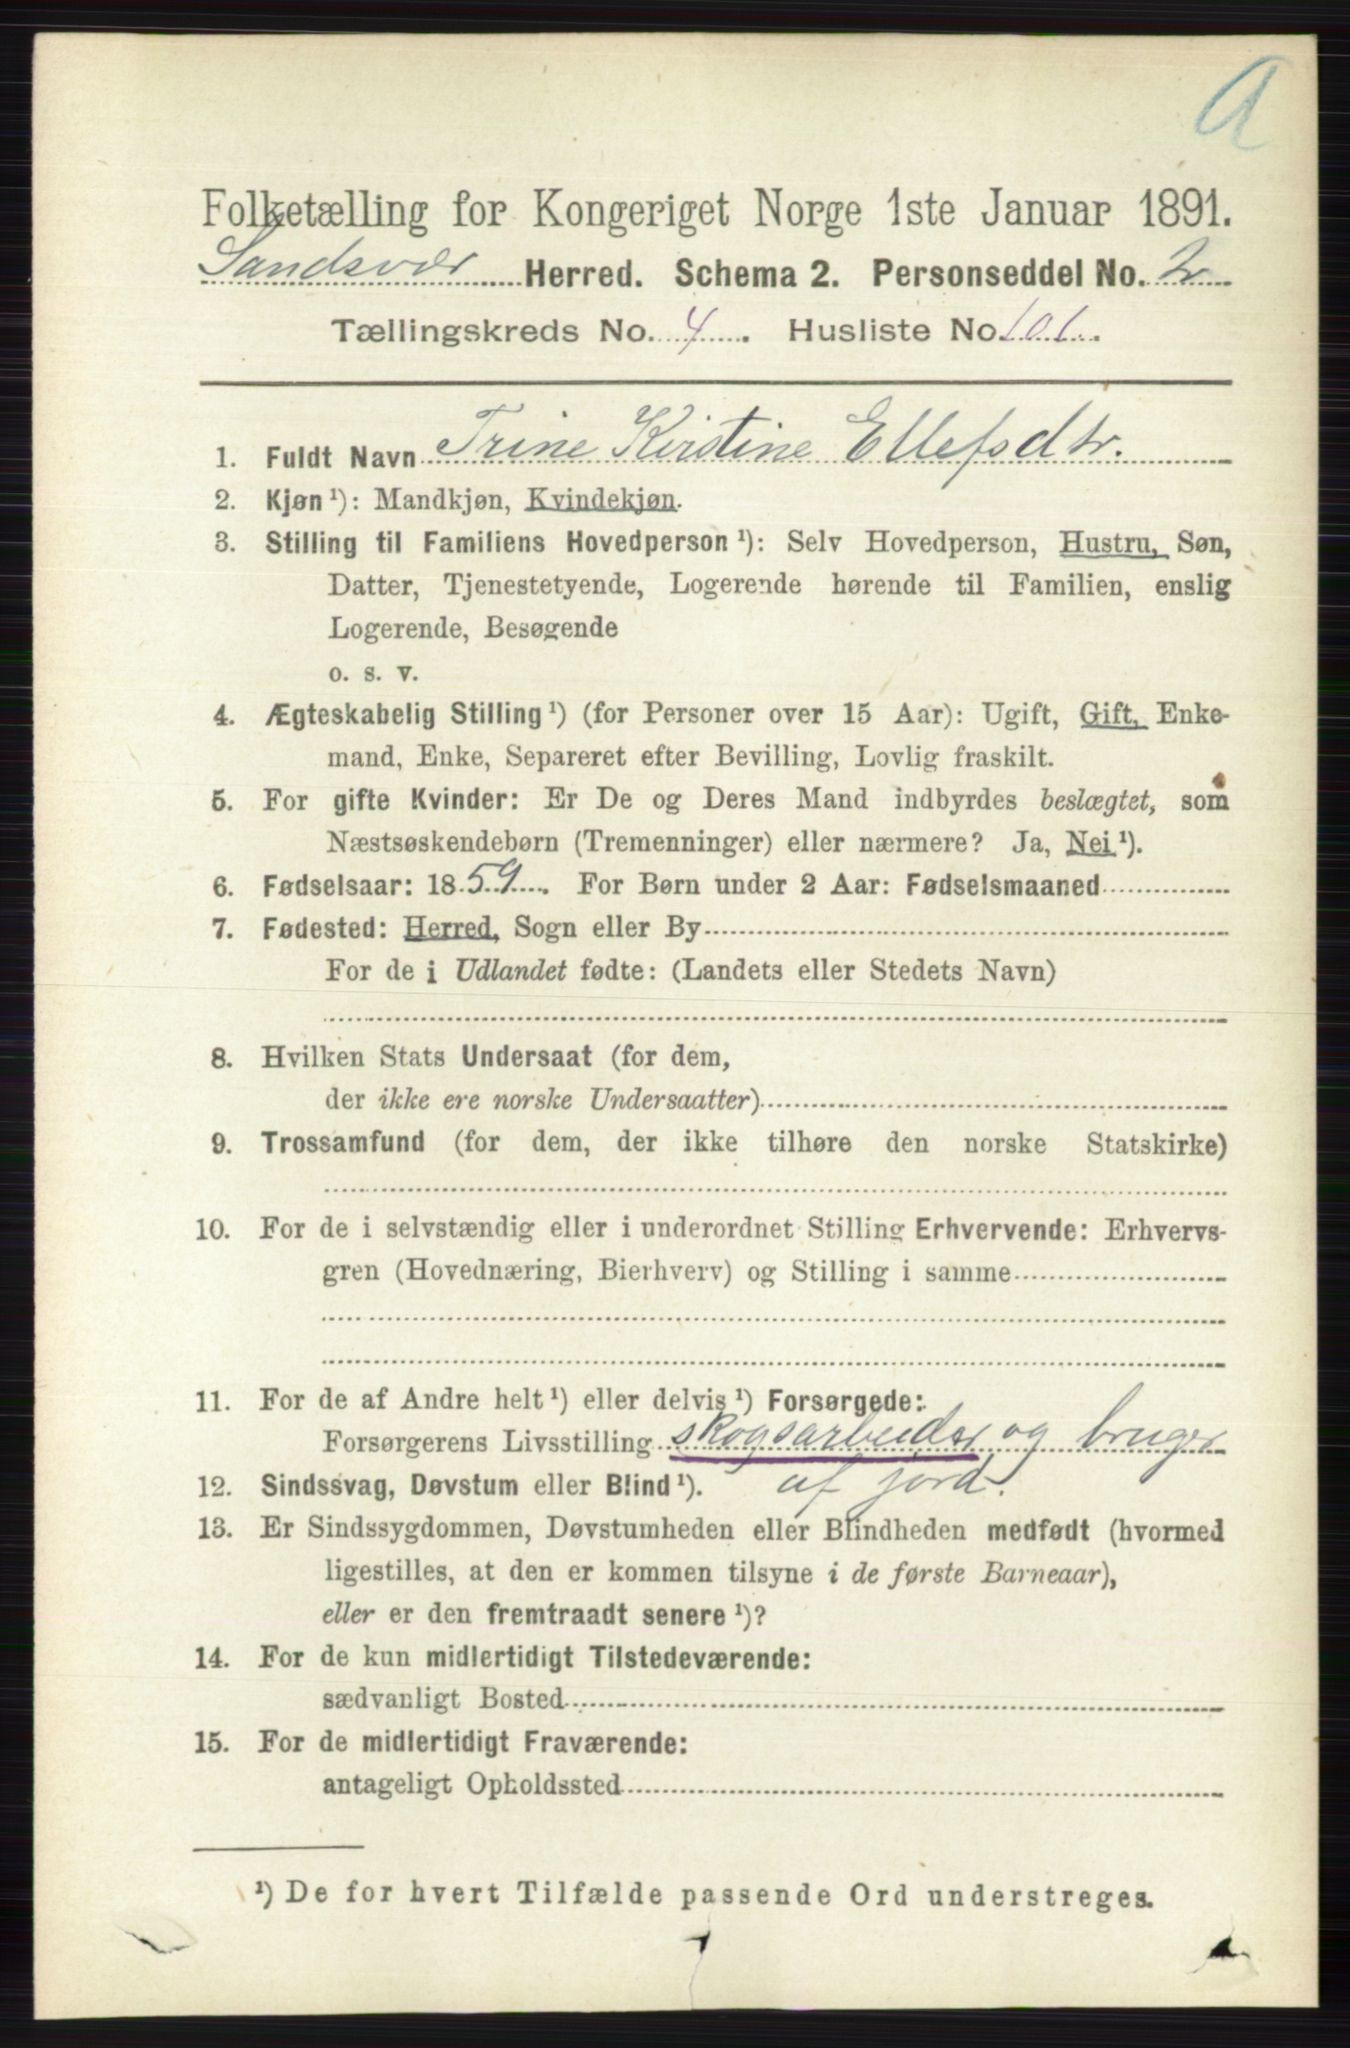 A
Folketælling for Kongeriget Norge 1ste Januar 1891.
Sandsvær Herred. Schema 2. Personseddel No. 2
Tællingskreds No. 4. Husliste No. 101.
1. Fuldt Navn Trine Kirstine Ellefsdtr.
2. Kjøn ¹): Mandkjøn, Kvindekjøn.
3. Stilling til Familiens Hovedperson ¹): Selv Hovedperson, Hustru, Søn,
Datter, Tjenestetyende, Logerende hørende til Familien, enslig
Logerende, Besøgende
o. s. v.
4. Ægteskabelig Stilling ¹) (for Personer over 15 Aar): Ugift, Gift, Enke-
mand, Enke, Separeret efter Bevilling, Lovlig fraskilt.
5. For gifte Kvinder: Er De og Deres Mand indbyrdes beslægtet, som
Næstsøskendebørn (Tremenninger) eller nærmere? Ja, Nei ¹).
6. Fødselsaar: 1859. For Børn under 2 Aar: Fødselsmaaned
7. Fødested: Herred, Sogn eller By
For de i Udlandet fødte: (Landets eller Stedets Navn)
8. Hvilken Stats Undersaat (for dem,
der ikke ere norske Undersaatter)
9. Trossamfund (for dem, der ikke tilhøre den norske Statskirke)
10. For de i selvstændig eller i underordnet Stilling Erhvervende: Erhvervs-
gren (Hovednæring, Bierhverv) og Stilling i samme
11. For de af Andre helt ¹) eller delvis ¹) Forsørgede:
Forsørgerens Livsstilling skogsarbeider og bruger
12. Sindssvag, Døvstum eller Blind ¹). af jord.
13. Er Sindssygdommen, Døvstumheden eller Blindheden medfødt (hvormed
ligestilles, at den er kommen tilsyne i de første Barneaar),
eller er den fremtraadt senere ¹)?
14. For de kun midlertidigt Tilstedeværende:
sædvanligt Bosted
15. For de midlertidigt Fraværende:
antageligt Opholdssted
¹) De for hvert Tilfælde passende Ord understreges.